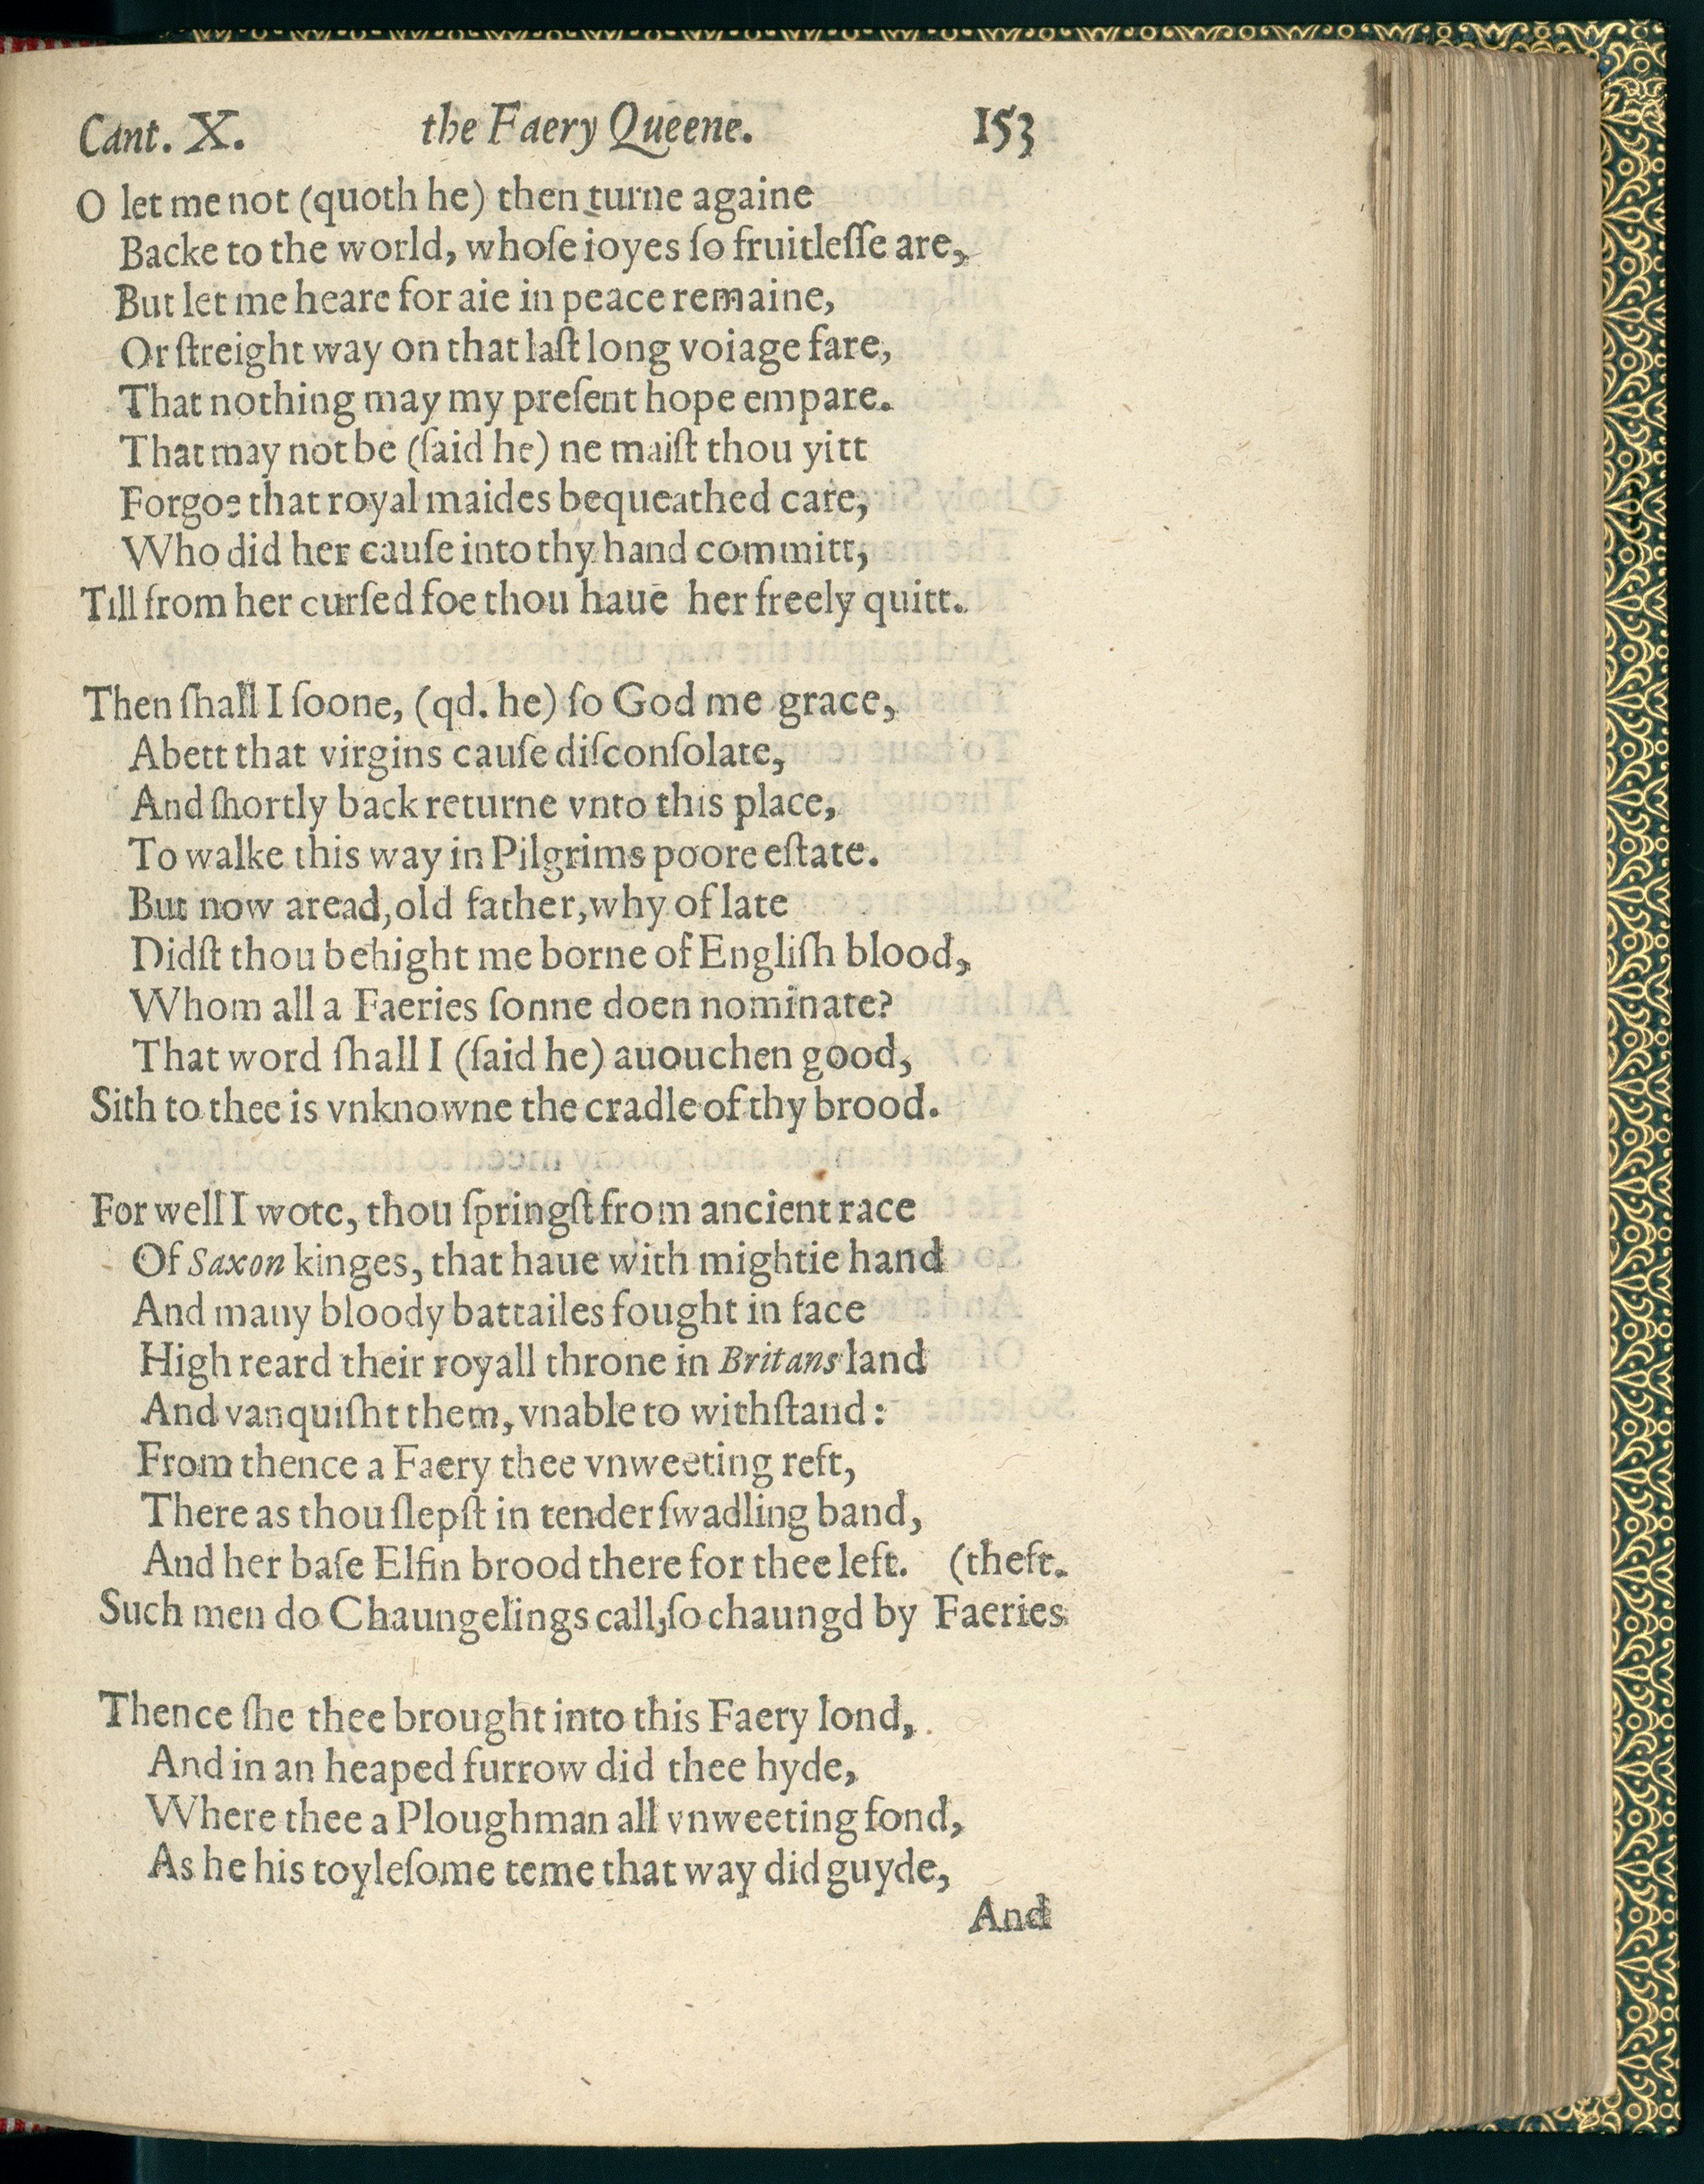 Cant. X. the Faery Queene. 153
O let me not (quoth he) then turne againe
Backe to the world, whoſe ioyes ſo fruitleſſe are,
But let me heare for aie in peace remaine,
Or ſtreight way on that laſt long voiage fare,
That nothing may my preſent hope empare.
That may not be (ſaid he) ne maiſt thou yitt
Forgoe that royal maides bequeathed care,
Who did her cauſe into thy hand committ,
Till from her curſed foe thou haue her freely quitt.
Then ſhall I ſoone, (qd. he) ſo God me grace,
Abett that virgins cauſe diſconſolate,
And ſhortly back returne vnto this place,
To walke this way in Pilgrims poore eſtate.
But now aread, old father, why of late
Didſt thou behight me borne of Engliſh blood,
Whom all a Faeries ſonne doen nominate?
That word ſhall I (ſaid he) auouchen good,
Sith to thee is vnknowne the cradle of thy brood.
For well I wote, thou ſpringſt from ancient race
Of Saxon kinges, that haue with mightie hand
And many bloody battailes fought in face
High reard their royall throne in Britans land
And vanquiſht them, vnable to withſtand:
From thence a Faery thee vnweeting reft,
There as thou ſlepſt in tender ſwadling band,
And her baſe Elfin brood there for thee left. (theft.
Such men do Chaungelings call, ſo chaungd by Faeries
Thence ſhe thee brought into this Faery lond,
And in an heaped furrow did thee hyde,
Where thee a Ploughman all vnweeting fond,
As he his toyleſome teme that way did guyde,
And